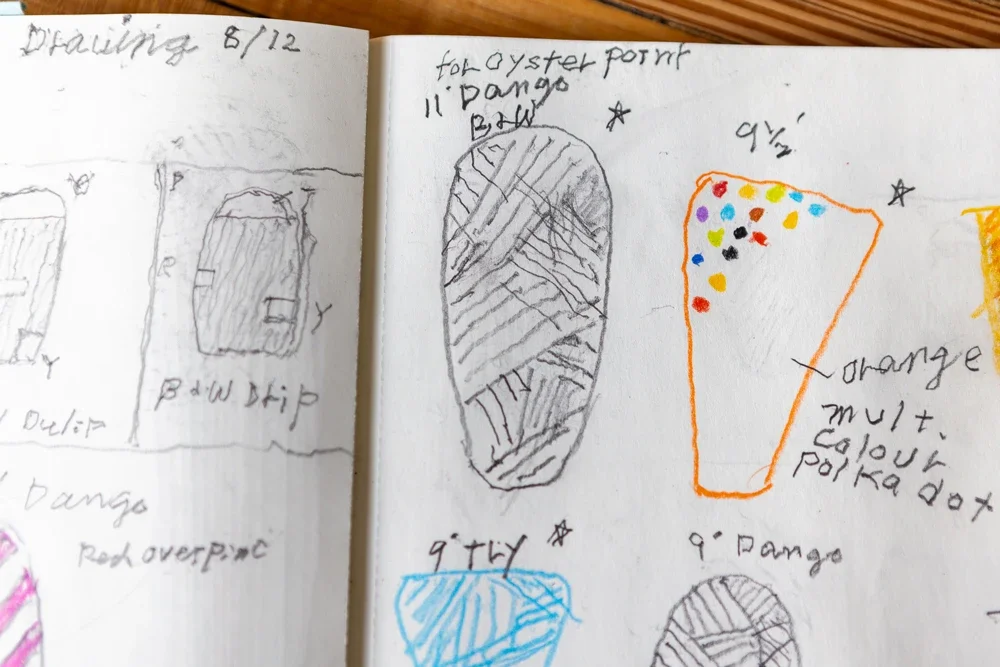 Drawing 8/12
P
R
Y
Y
B&W Drip
Dango
Red over Pink
for Oyster Point
11" Dango
B&W
9½"
orange
mult.
Colour
Polka dot
9" TRY
9" Dango